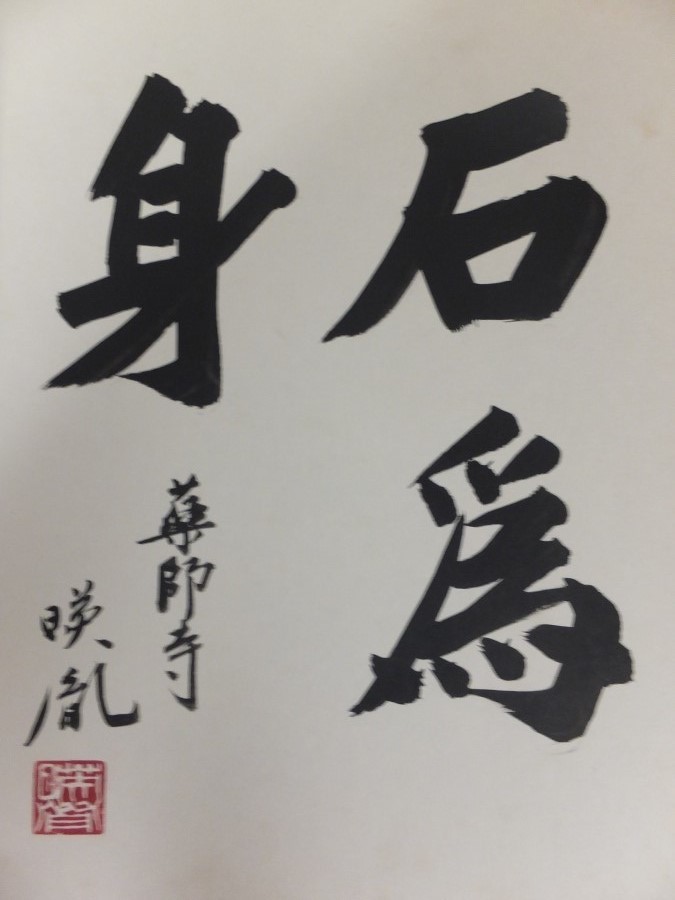 石為
身
藥師寺
暎胤